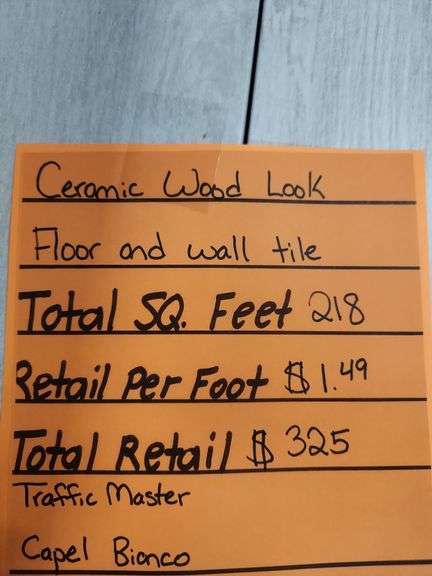 Ceramic Wood Look
Floor and wall tile
Total SQ. Feet 218
Retail Per Foot $1.49
Total Retail $ 325
Traffic Master
Capel Bianco